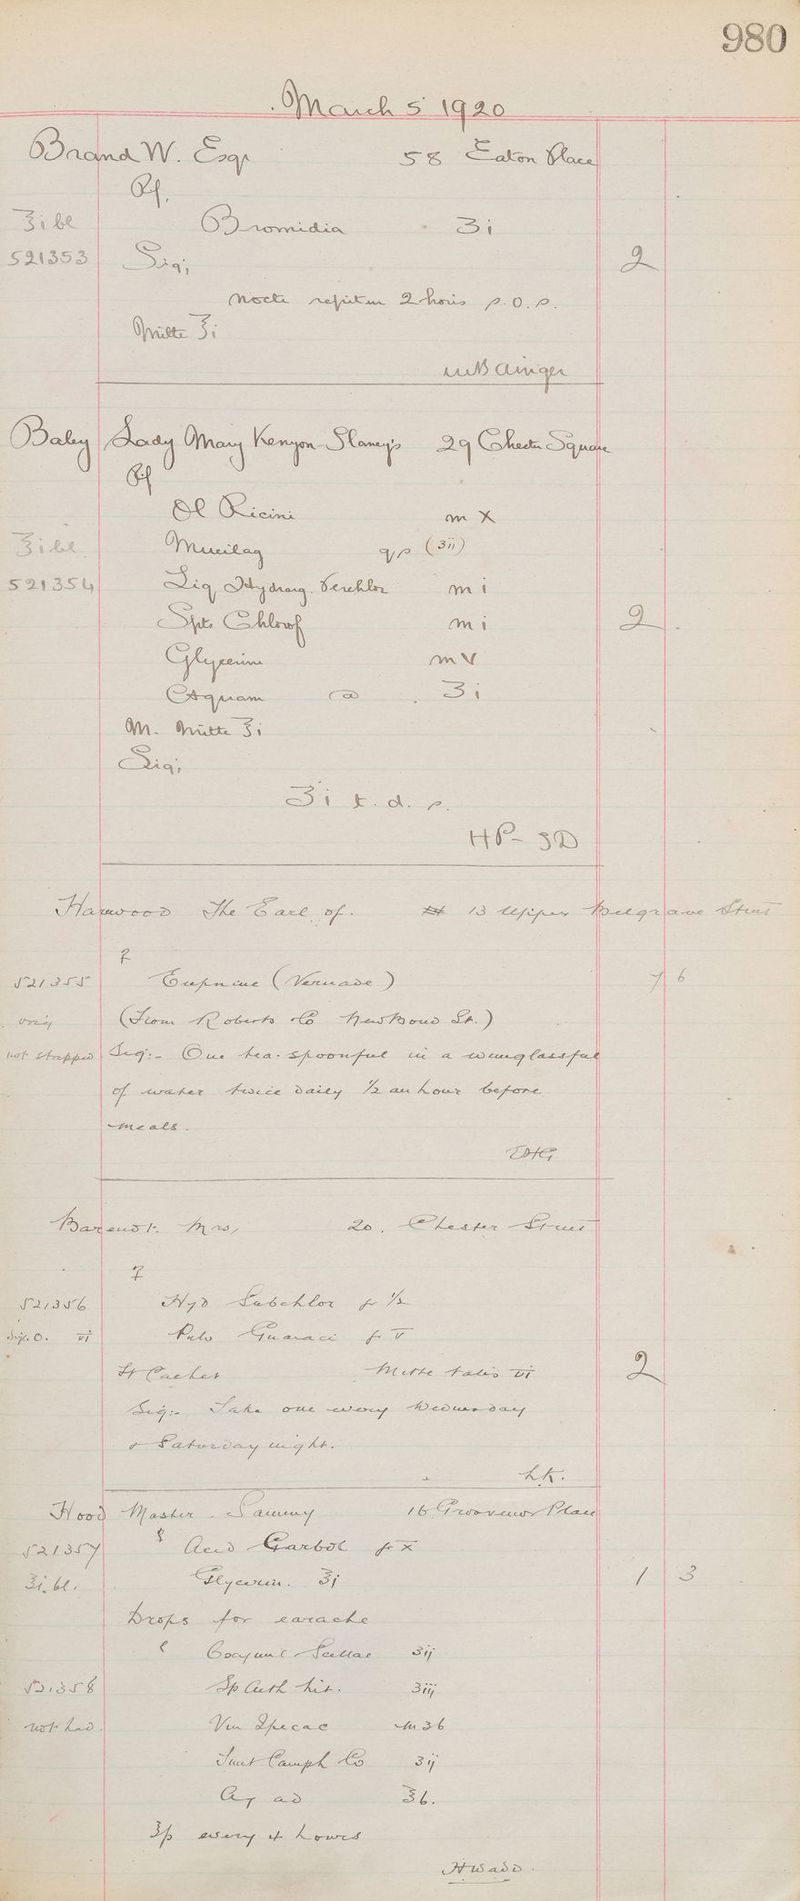 980
March 5 1920
Brand W. Esqr 58 Eaton Place
Rf.
℥i bl Bromidia ℥i
521353 Sig; 2
Nocte repetitur 2 horis p.o.p.
Mitte ℥i
Baby Lady Mary Kenyon-Slaney's 29 Chester Square
Rf
Ol Ricini m X
℥i bl. Mucilag qs (ʒii)
521354 Liq Hydrarg. Perchlor m i
Spts Chlorof m i 2
Glycerini m V
Aquam @ ʒi
M. Mitte ℥i
Sig;
ʒi t. d. s.
HP- SD
Harwood The Earl of. 13 Upper Belgrave Street
521355 Eupnine (Vernade) 7 6
orig (From Roberts & Co New Bond St.)
not stopped Sig:- One tea-spoonful in a wineglassful
of water twice daily 1/2 an hour before
meals.
Barendt. Mrs, 20. Chester Street
521356 Hyd Subchlor gr 1/2
vi Pulv Guaiaci gr V
Ft Cachet Mitte talis vi 2
Sig:- Take one every Wednesday
& Saturday night.
h.K.
Hood Master. Sammy 16 Grosvenor Place
521357 Acid Carbol gr x
℥i. bl. Glycerin. ℥i 1 3
Drops for earache
Oxymel Scillae ʒij
521358 Sp Aeth Nit. ʒiij
not had. Vin Ipecac m 36
Tinct Camph Co ʒij
Aq ad ℥6.
every 4 hours